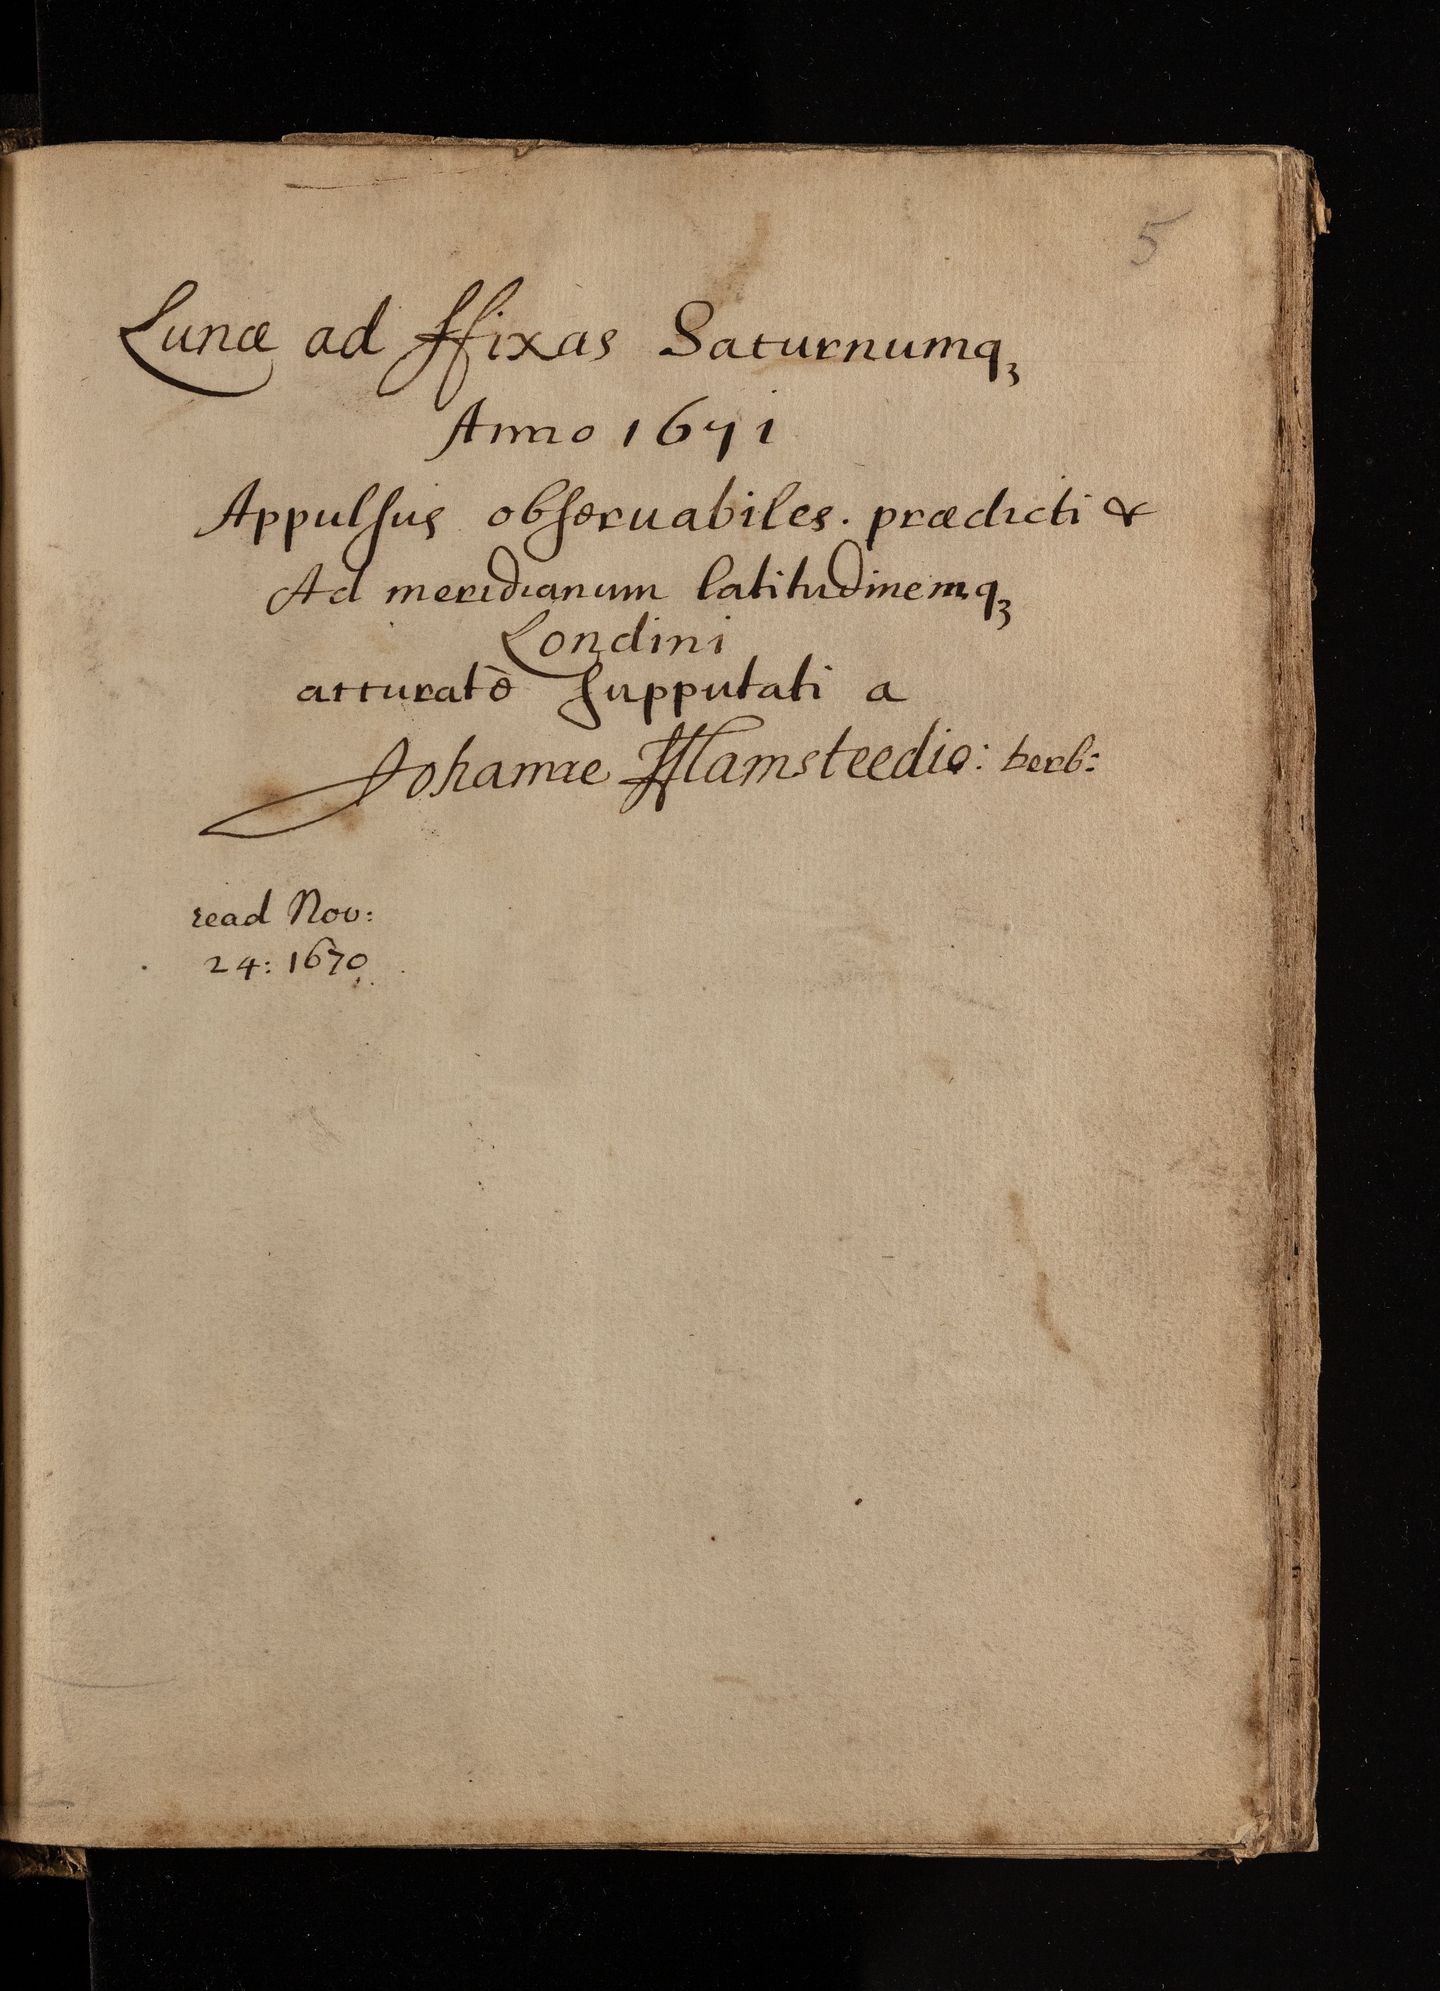 5
Lunæ ad ffixas Saturnumq₃
Anno 1671
Appulsus obseruabiles. prædicti &
Ad meridianum latitudinemq₃
Londini
accuratè supputati a
Johanne Fflamsteedio: Derb:
read Nov:
24: 1670